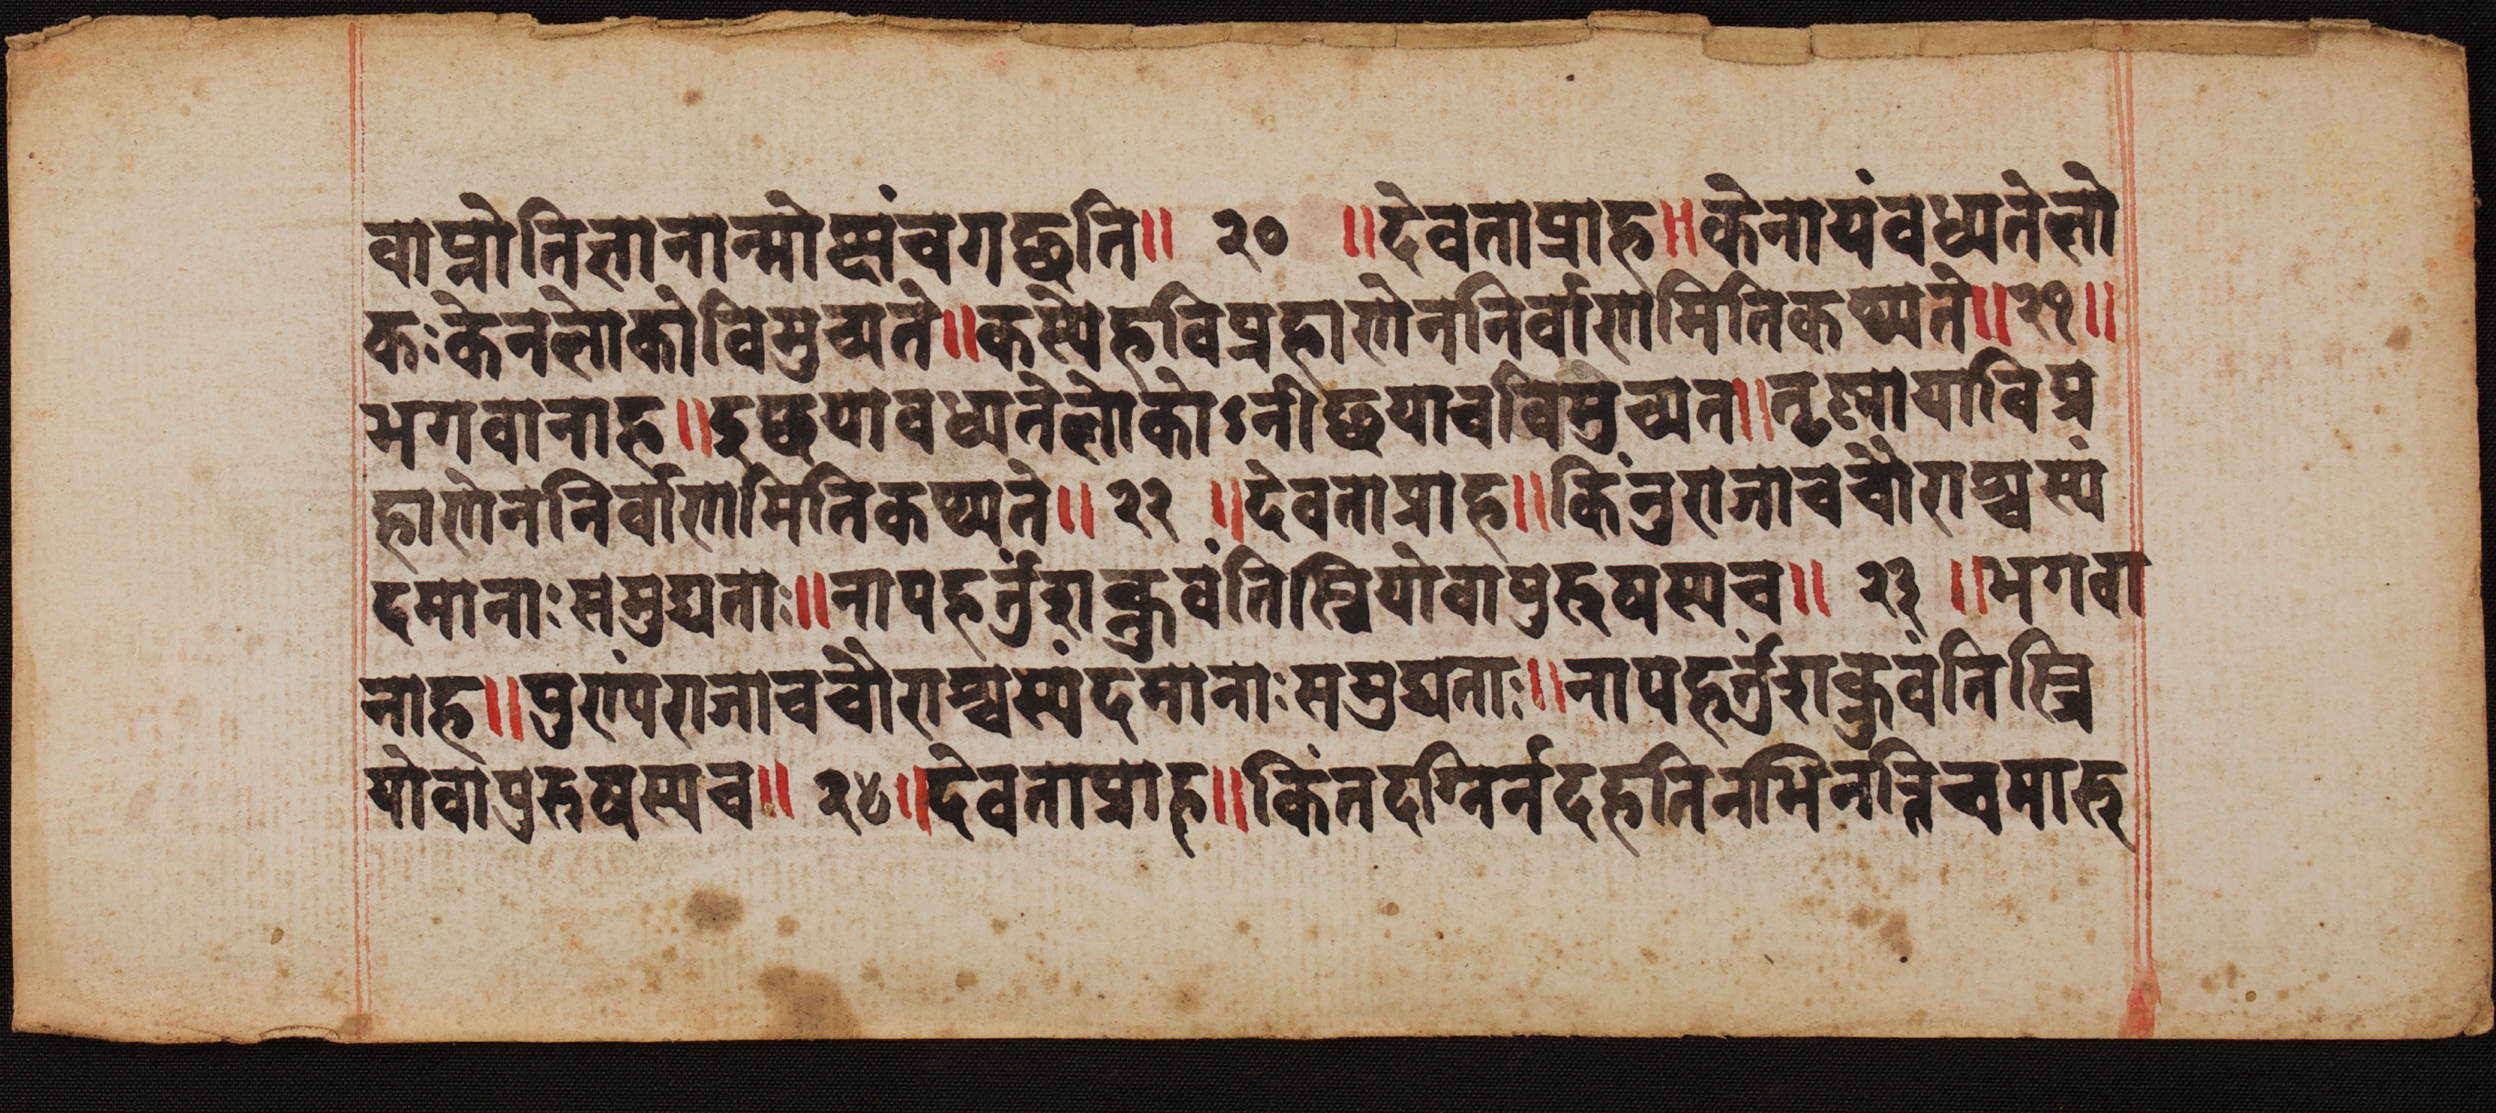 वाप्नोतिज्ञानान्मोक्षंचगछति॥ २० ॥देवताप्राह॥केनायंवध्यतेलो
कःकेनलोकोविमुच्यते॥कस्येहविप्रहाणेननिर्वाणमितिकथ्यते॥२१॥
भगवानाह॥इछयावध्यतेलोकोऽनीछयाचविमुच्यत॥तृष्णायाविप्र
हाणेननिर्वाणमितिकथ्यते॥ २२ ॥देवताप्राह॥किंनुराजाचचौराश्चस्यं
दमानाःसमुद्यताः॥नापहर्तुंशक्नुवंतिस्त्रियोवापुरुषस्यच॥ २३ ॥भगवा
नाह॥पुण्यंपराजाचचौराश्चस्यंदमानाःसमुद्यताः॥नापहर्तुंशक्नुवंतिस्त्रि
योवापुरुषस्यच॥ २४॥देवताप्राह॥किंतदग्निर्नदहतिनभिनत्तिचमारु